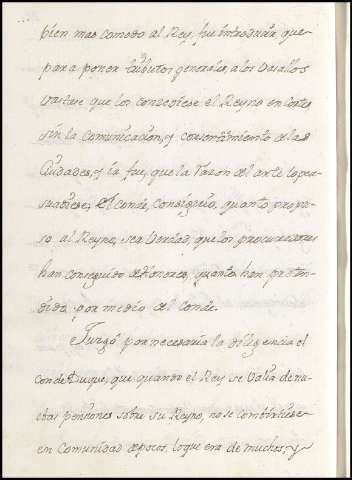 bien mas comodo al Rey, fue introducir que
para poner tributos generales, a los Vasallos
vastase que los conzediese el Reyno en Cortes
sin la comunicacion, y consentimiento de las
Ciudades, y la fue, que la razon del arte lo per-
suadiese, el Conde, consiguió, quanto propu-
so, al Reyno, sea Verdad, que los procuradores
han conseguido de honores, quanto han preten-
dido por medio del Conde.
Juzgó por necesaria la diligencia el
Conde Duque, que quando el Rey se Valia de nu-
ebas pensiones sobre su Reyno, no se combirtiese
en Comunidad de pocos, lo que era de muchos, y